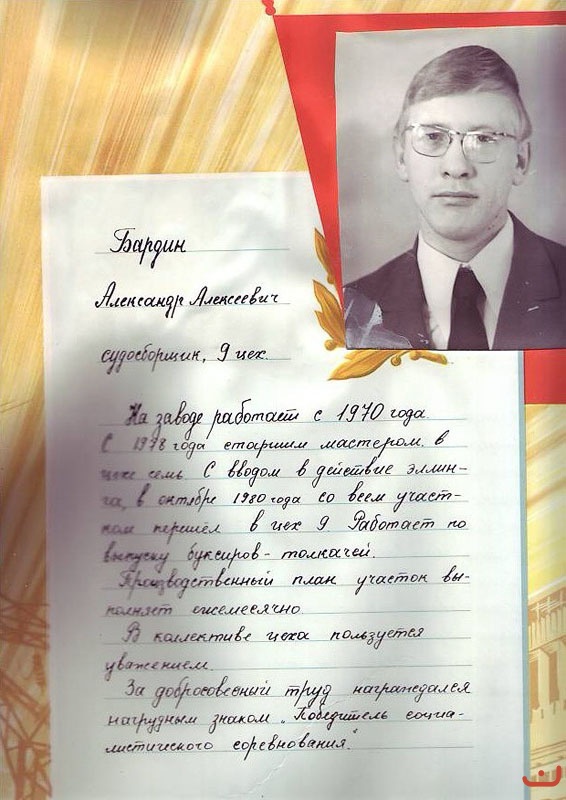 Бардин
Александр Алексеевич
судосборщик, 9 цех.
На заводе работает с 1970 года.
С 1978 года старшим мастером в
цехе семь. С вводом в действие эллин-
га, в октябре 1980 года со всем участ-
ком перешёл в цех 9 Работает по
выпуску буксиров-толкачей.
Производственный план участок вы-
полняет ежемесячно
В коллективе цеха пользуется
уважением.
За добросовесный труд награждался
нагрудным знаком „Победитель социа-
листического соревнования."